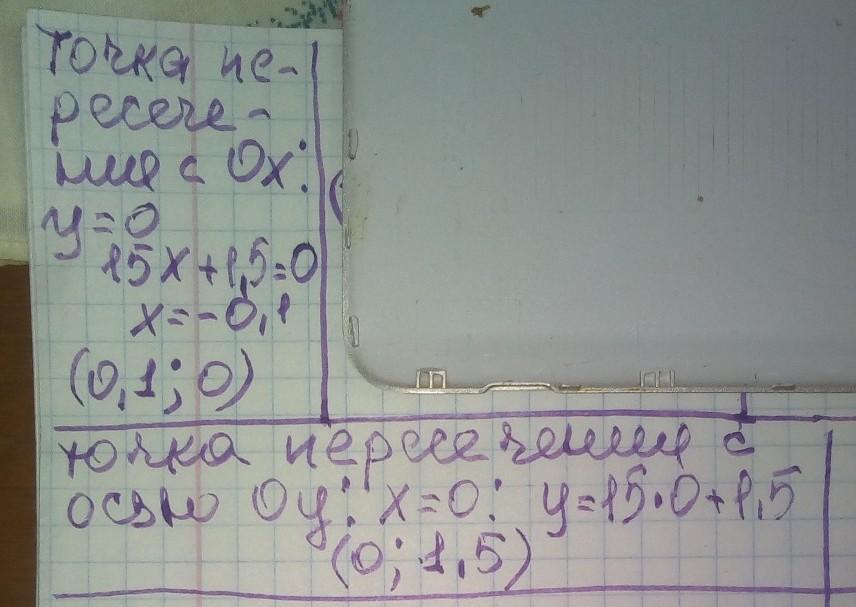 Точка пе-
ресече-
ния с Ox:
y=0
15x+1,5=0
x=-0,1
(0,1; 0)
(
точка пересечения с
осью Oy: x=0: y=15·0+1,5
(0; 1,5)